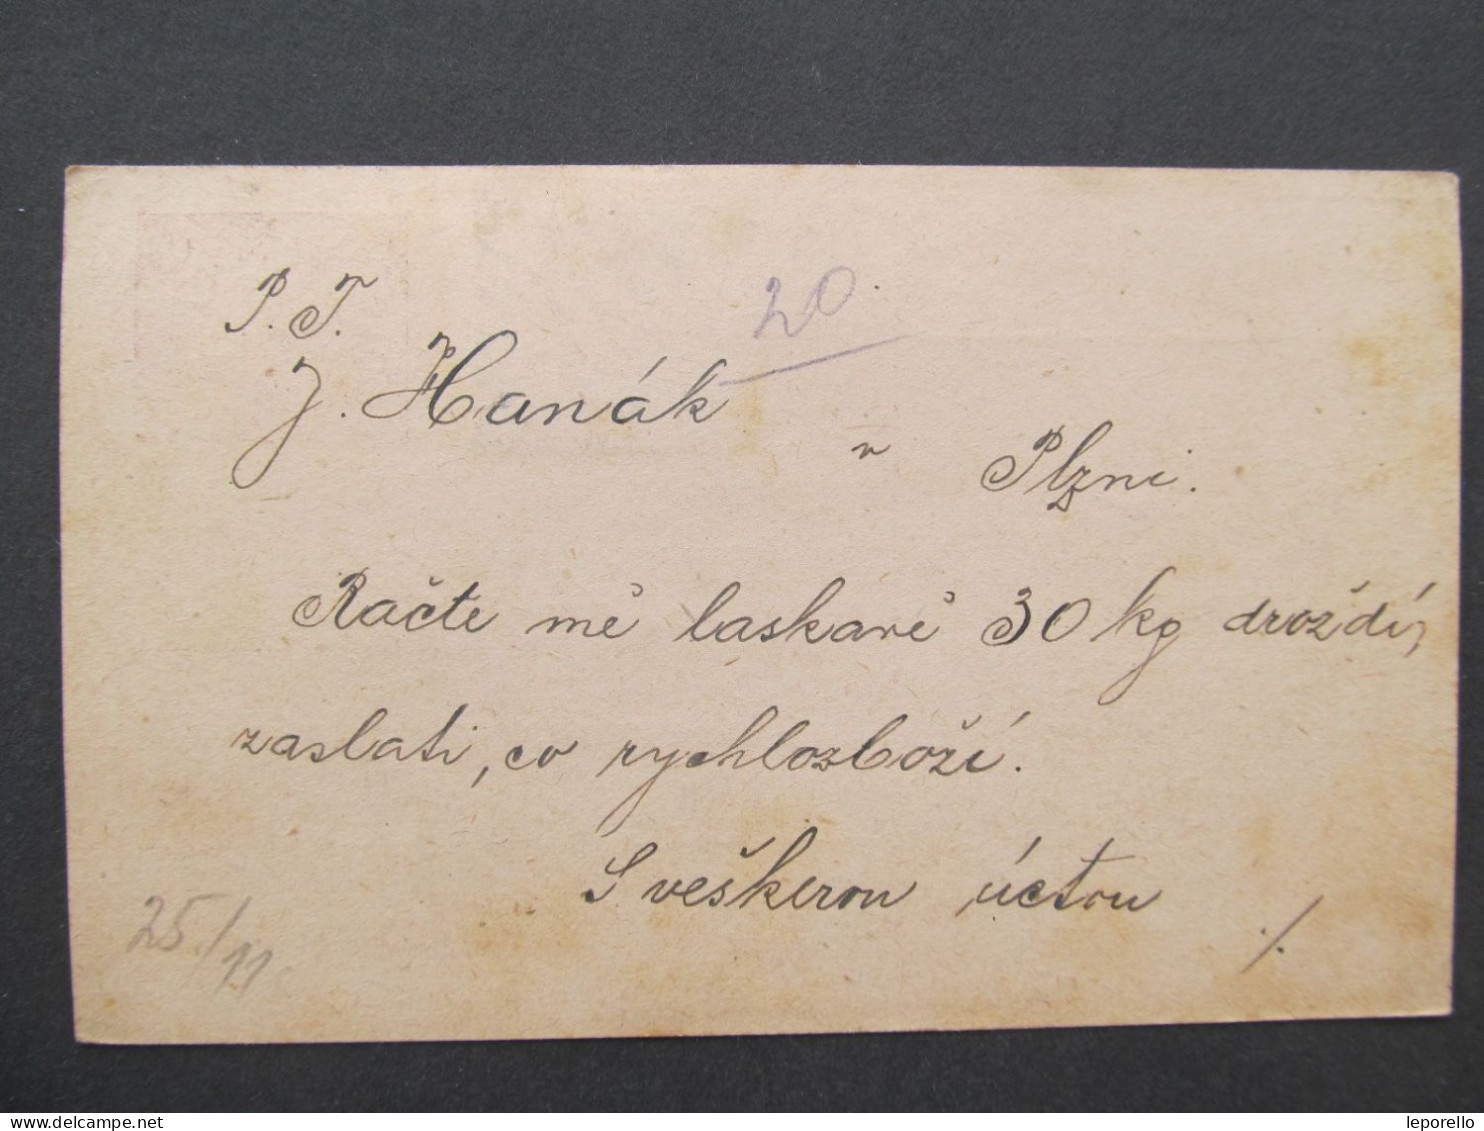 P. T.
20.
J. Hanák
v Plzni.
Račte mě laskavě 30 kg droždí,
zaslati, co rychlozboží.
S veškerou úctou
25./11.
./.
leporello